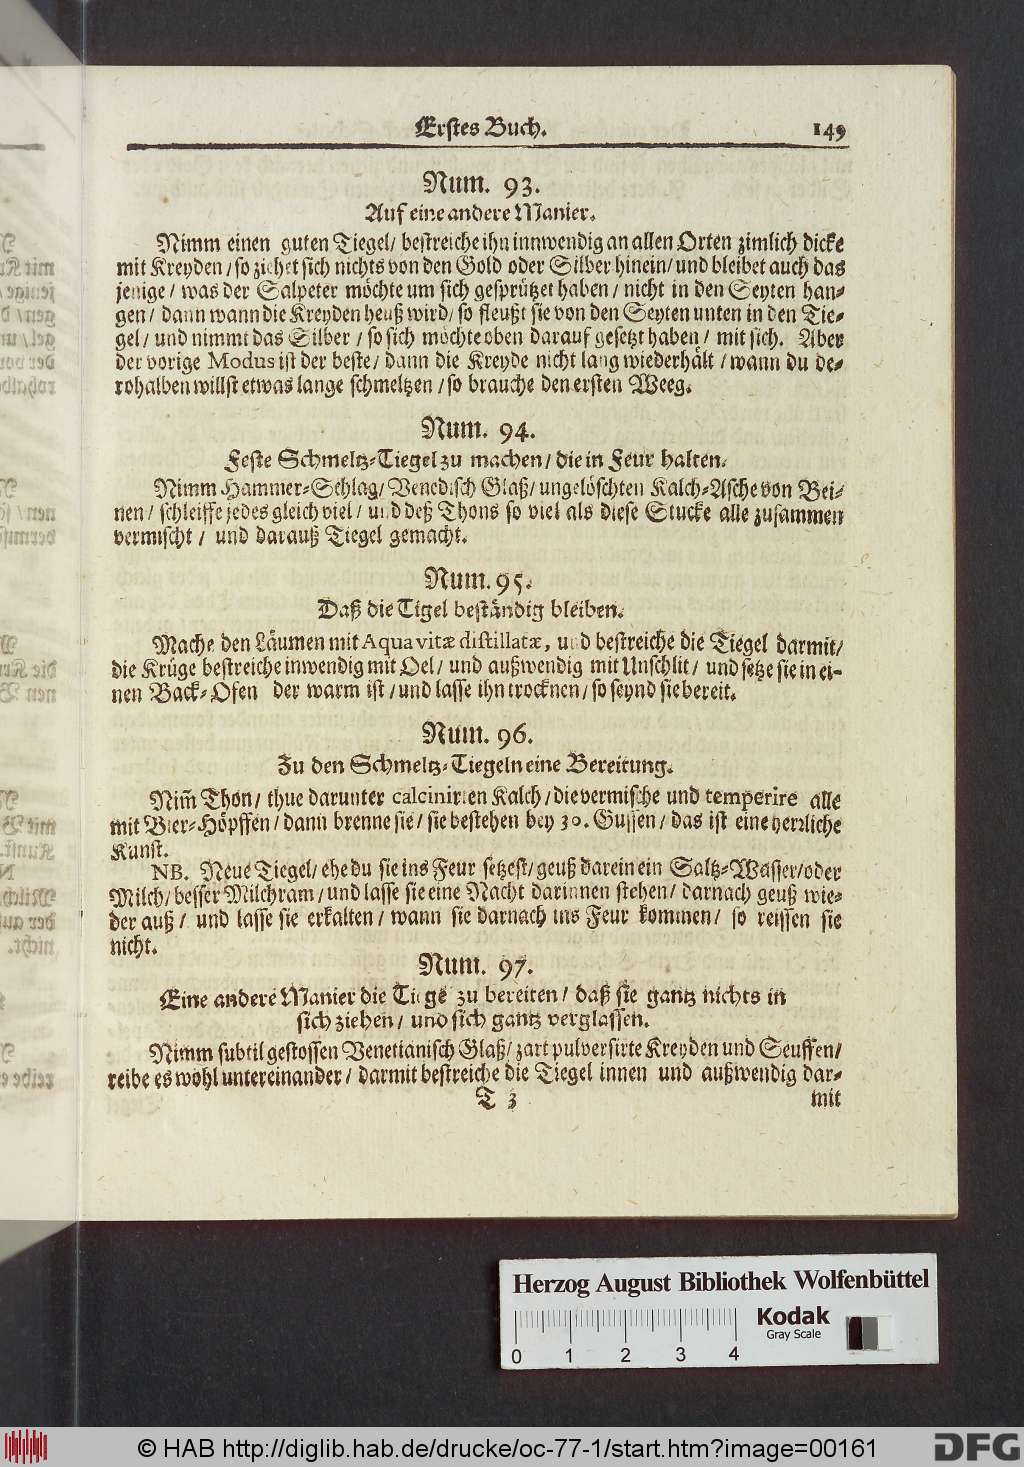 Erstes Buch. 149
Num. 93.
Auf eine andere Manier.
Nimm einen guten Tiegel/ bestreiche ihn innwendig an allen Orten zimlich dicke
mit Kreyden/ so ziehet sich nichts von den Gold oder Silber hinein/ und bleibet auch das
jenige/ was der Salpeter möchte um sich gesprützet haben/ nicht in den Seyten han-
gen/ dann wann die Kreyden heuß wird/ so fleußt sie von den Seyten unten in den Tie-
gel/ und nimmt das Silber/ so sich möchte oben darauf gesetzt haben/ mit sich. Aber
der vorige Modus ist der beste/ dann die Kreyde nicht lang wiederhält/ wann du de-
rohalben willst etwas lange schmeltzen/ so brauche den ersten Weeg.
Num. 94.
Feste Schmeltz-Tiegel zu machen/ die in Feur halten.
Nimm Hammer-Schlag/ Venedisch Glaß/ ungelöschten Kalch-Asche von Bei-
nen/ schleiffe jedes gleich viel/ und deß Thons so viel als diese Stucke alle zusammen
vermischt/ und darauß Tiegel gemacht.
Num. 95.
Daß die Tigel beständig bleiben.
Mache den Läumen mit Aqua vitæ distillatæ, und bestreiche die Tiegel darmit/
die Krüge bestreiche inwendig mit Oel/ und außwendig mit Unschlit/ und setze sie in ei-
nen Back-Ofen der warm ist/ und lasse ihn trocknen/ so seynd sie bereit.
Num. 96.
Zu den Schmeltz-Tiegeln eine Bereitung.
Nim̃ Thon/ thue darunter calcinirten Kalch/ die vermische und temperire alle
mit Bier-Höpffen/ dann brenne sie/ sie bestehen bey 30. Güssen/ das ist eine herrliche
Kunst.
NB. Neue Tiegel/ ehe du sie ins Feur setzest/ geuß darein ein Saltz-Wasser/ oder
Milch/ besser Milchram/ und lasse sie eine Nacht darinnen stehen/ darnach geuß wie-
der auß/ und lasse sie erkalten/ wann sie darnach ins Feur kommen/ so reissen sie
nicht.
Num. 97.
Eine andere Manier die Tiegel zu bereiten/ daß sie gantz nichts in
sich ziehen/ und sich gantz verglassen.
Nimm subtil gestossen Venetianisch Glaß/ zart pulversirte Kreyden und Seuffen/
reibe es wohl untereinander/ darmit bestreiche die Tiegel innen und außwendig dar-
T 3 mit
Herzog August Bibliothek Wolfenbüttel
Kodak
Gray Scale
0 1 2 3 4
© HAB http://diglib.hab.de/drucke/oc-77-1/start.htm?image=00161
DFG